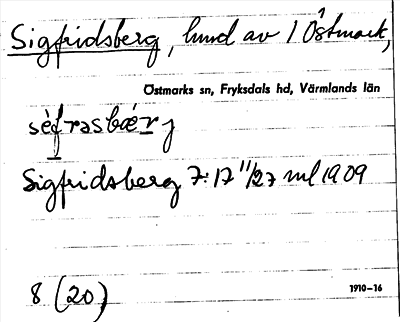 Sigfridsberg, hmd av 1 Östmark,
Östmarks sn, Fryksdals hd, Värmlands län
sèfrasbærj
Sigfridsberg 7:17 11/27 ml 1909
8 (20)
1910-16